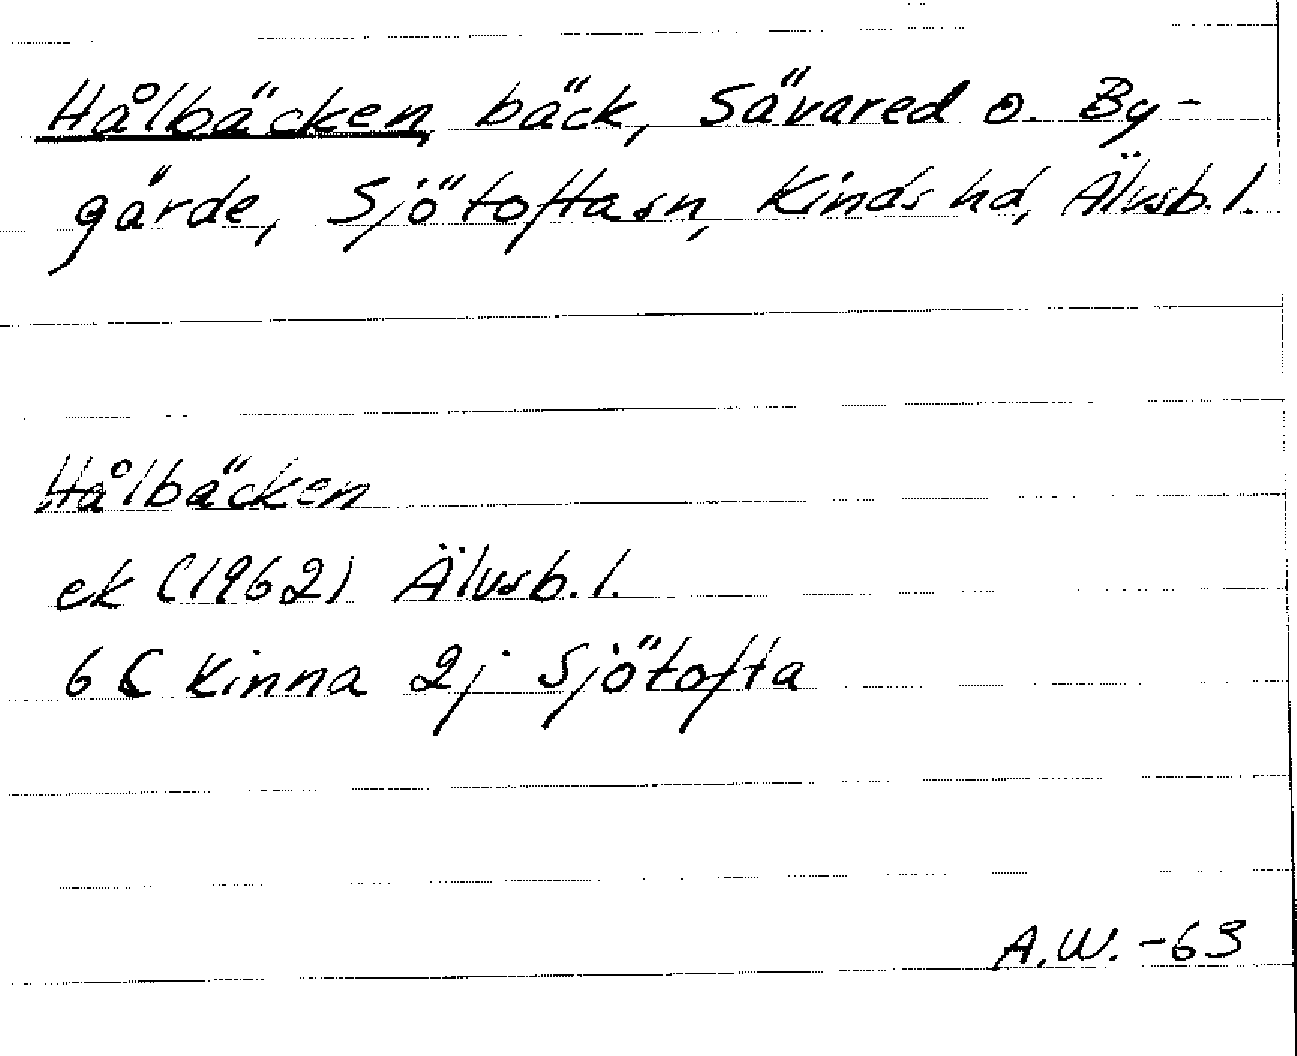 Hålbäcken, bäck, Sävared o. By-
gärde, Sjötofta sn, Kinds hd, Älvsb. l.
Hålbäcken
ek (1962) Älvsb. l.
6C Kinna 2j Sjötofta
A.W. -63